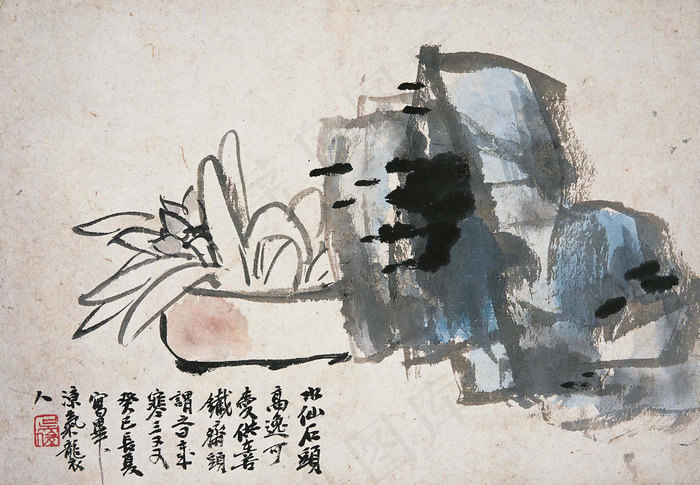 水仙石頭
高逸可
愛供養
鐵齋頭
謂
寒三
癸巳長夏
寫畢
涼氣襲
人